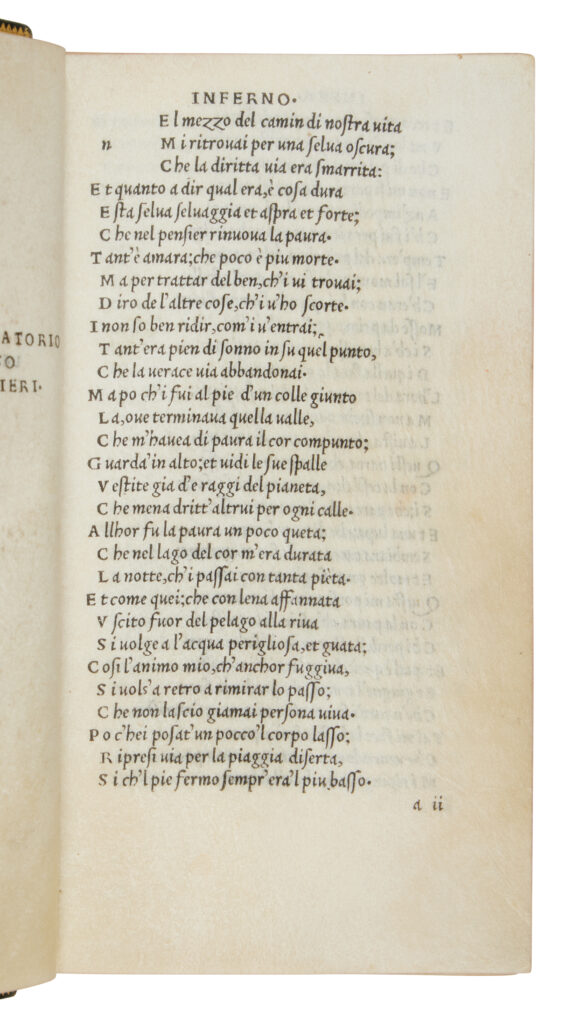 ATORIO
O
IERI.
INFERNO.
El mezzo del camin di nostra uita
n Mi ritrouai per una selua oscura;
Che la diritta uia era smarrita:
Et quanto a dir qual era, è cosa dura
Esta selua seluaggia et aspra et forte;
Che nel pensier rinuoua la paura.
Tant'è amara; che poco è piu morte.
Ma per trattar del ben, ch'i ui trouai;
Diro de l'altre cose, ch'i u'ho scorte.
I non so ben ridir, com'i u'entrai;
Tant'era pien di sonno in su quel punto,
Che la uerace uia abbandonai.
Ma po ch'i fui al pie d'un colle giunto
La, oue terminaua quella ualle,
Che m'hauea di paura il cor compunto;
Guarda'in alto; et uidi le sue spalle
Vestite gia d'e raggi del pianeta,
Che mena dritt'altrui per ogni calle.
Allhor fu la paura un poco queta;
Che nel lago del cor m'era durata
La notte, ch'i passai con tanta pièta.
Et come quei; che con lena affannata
Vscito fuor del pelago alla riua
Si uolge a l'acqua perigliosa, et guata;
Cosi l'animo mio, ch'anchor fuggiua,
Si uols'a retro a rimirar lo passo;
Che non lascio giamai persona uiua.
Po c'hei posat'un pocco'l corpo lasso;
Ripresi uia per la piaggia diserta,
Si ch'l pie fermo sempr'era'l piu basso.
a ii